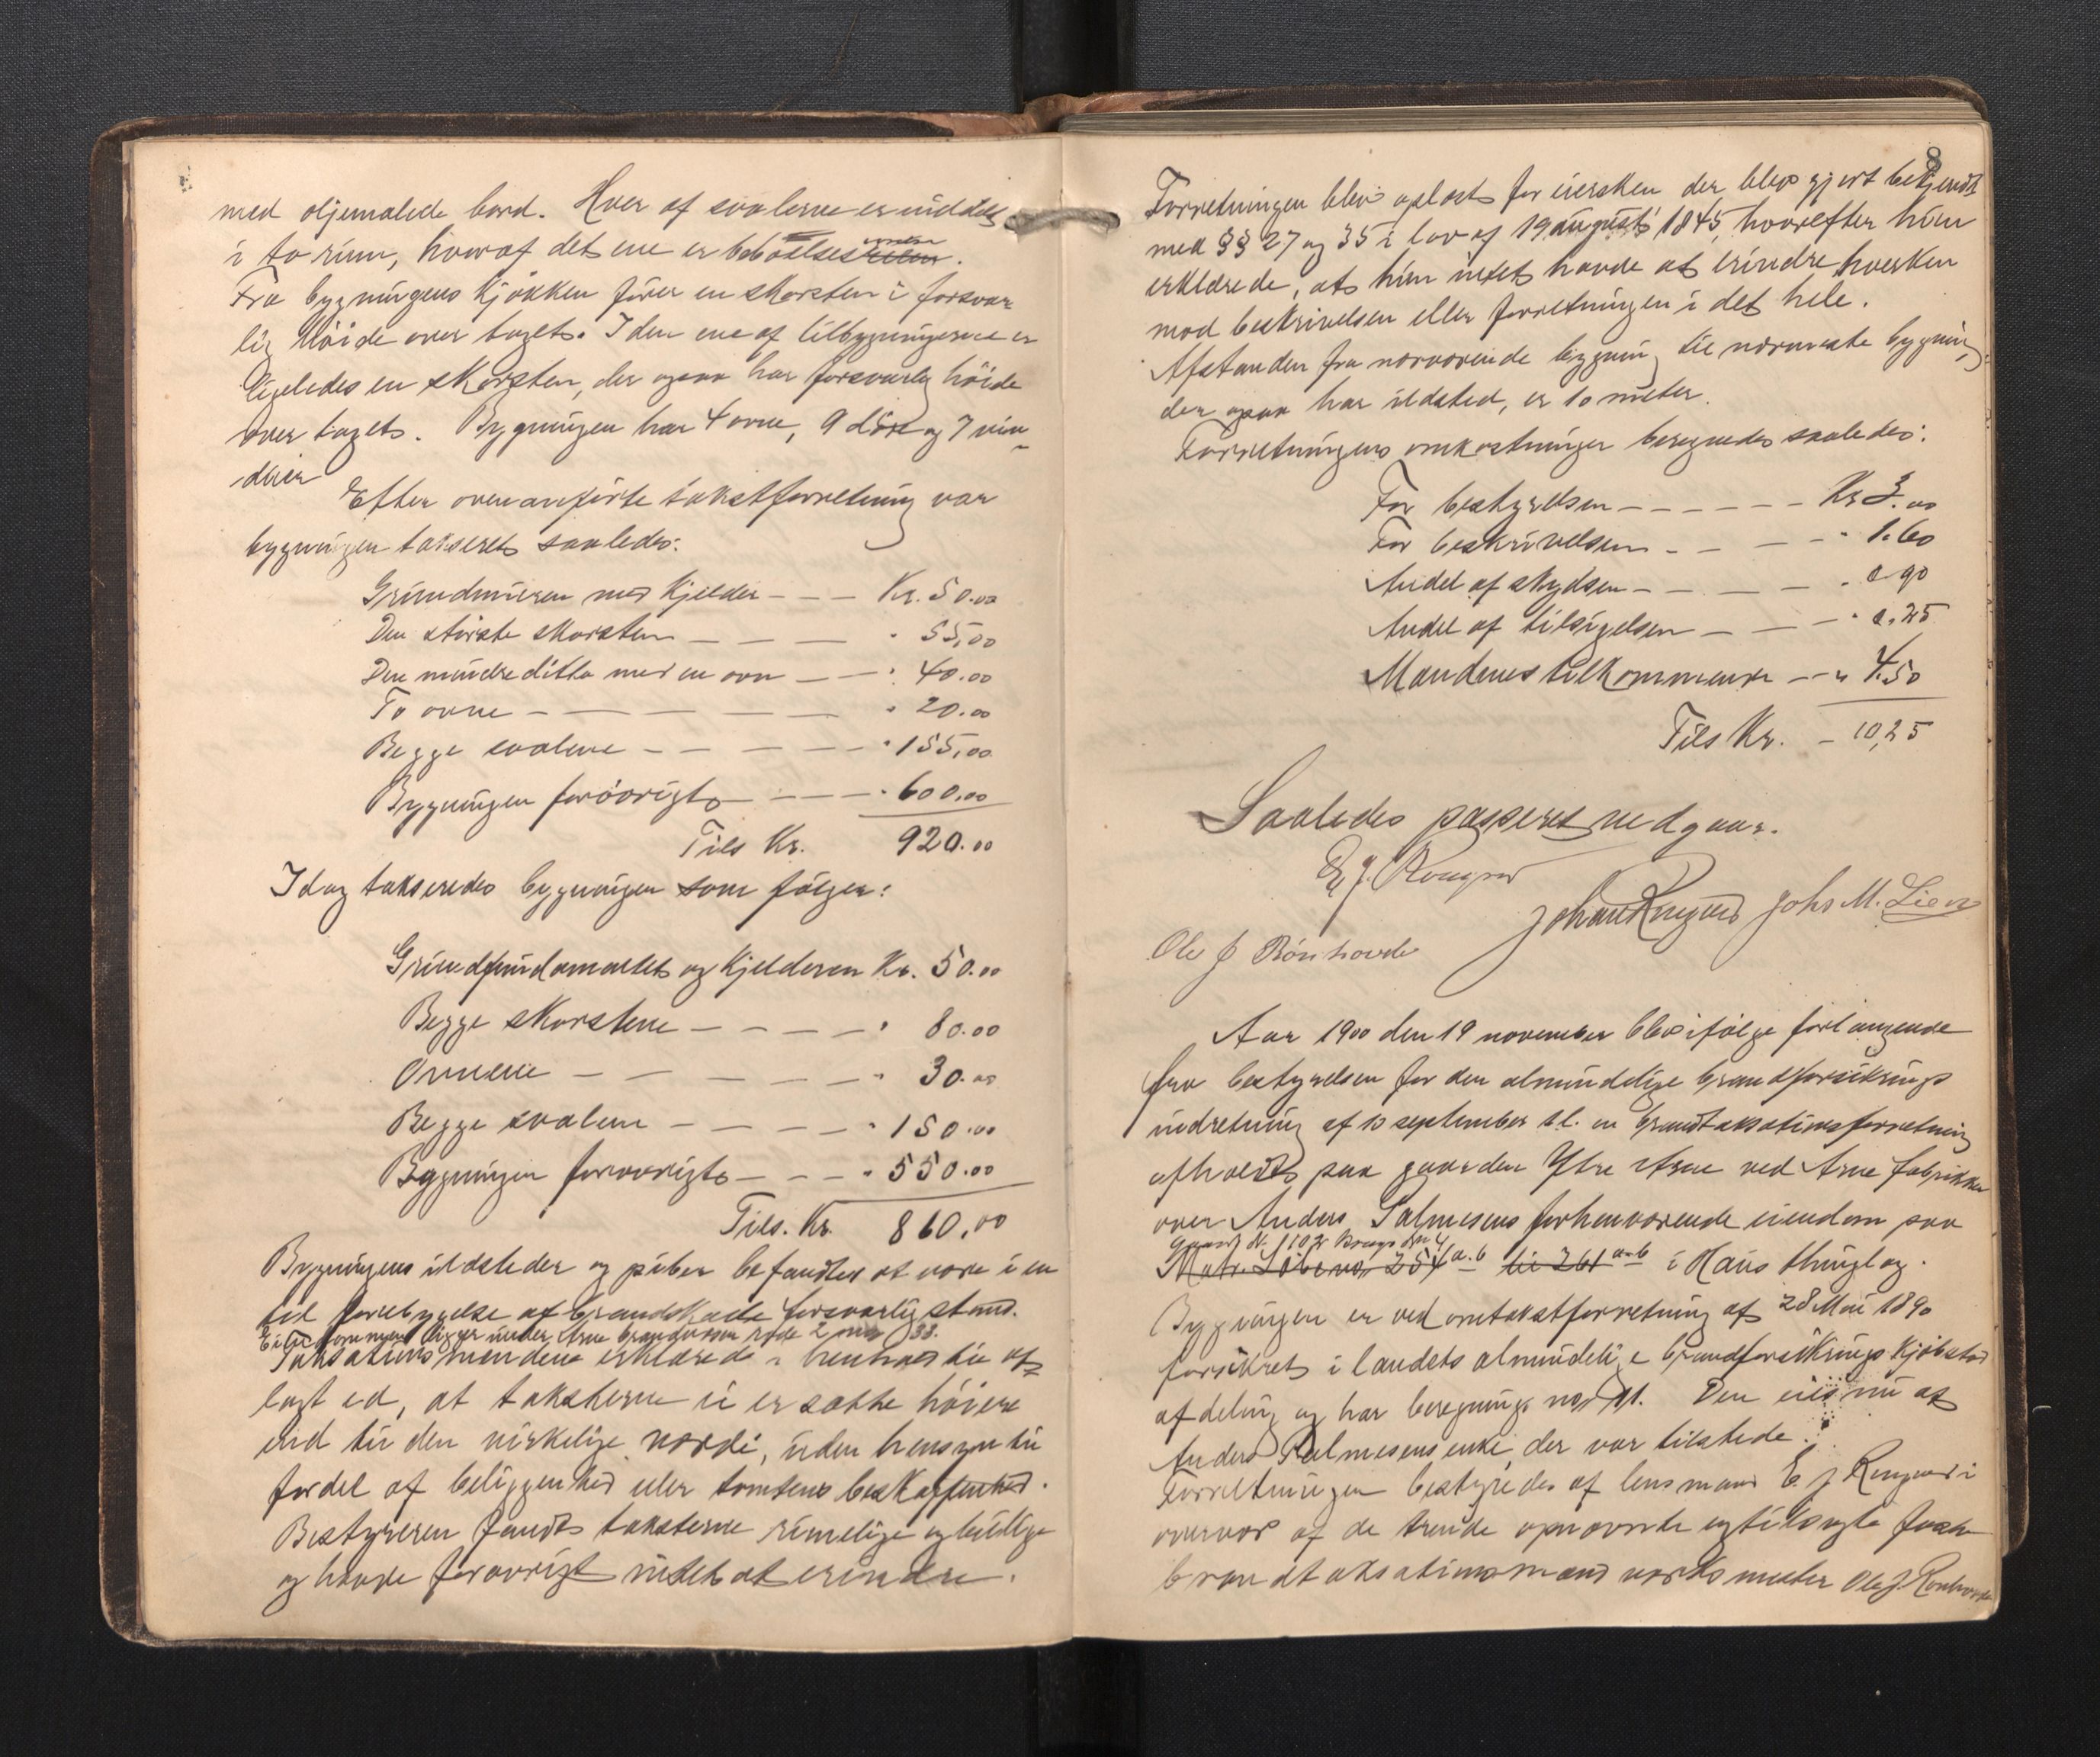 med oljemalede bord. Hver af svalerne er inddelt
i to rum, hvoraf det ene er beboelses
Fra bygningens kjøkken fører en skorsten i forsvar
lig høide over taget. I den ene af tilbygningerne er
ligeledes en skorsten, der ogsaa har forsvarlig høide
over taget. Bygningen har 4 ovne, 9 døre og 7 vin-
duer
Efter ovenanførte takstforretning var
bygningen takseret saaledes:
Grundmuren med kjelder - - - Kr. 50.00
Den største skorsten - - - " 55,00
Den mindre ditto med en ovn - - " 40.00
To ovne - - - - " 20.00
Begge svalene - - - - " 155,00
Bygningen forøvrigt - - - " 600,00
Tils Kr. 920.00
Idag takseredes bygningen som følger:
Grundfundamentet og kjelderen Kr. 50.00
Begge skorstene - - - - " 80.00
Ovnene - - - - - " 30.00
Begge svalene - - - - " 150.00
Bygningen forøvrigt - - - " 550.00
Tils. Kr. 860,00
Bygningens ildsteder og piber befandtes at være i en
til forebyggelse af brandskade forsvarlig stand.
Eiendommen ligger under Arne brandkasse rode 2 no 33.
Taksationsmændene erklærede i henhold til af-
lagt ed, at taksterne ei er satte høiere
end til den virkelige værdi, uden hensyn til
fordel af beliggenhed eller tomtens beskaffenhed.
Bestyreren fandt taksterne rimelige og billige
og havde forøvrigt intet at erindre.
8
Forretningen blev oplæst for eiersken der blev gjort bekjendt
med §§ 27 og 35 i lov af 19 august 1845, hvorefter hun
erklærede, at hun intet havde at erindre hverken
mod beskrivelsen eller forretningen i det hele.
Afstanden fra nærværende bygning til nærmeste bygning,
der ogsaa har ildsted, er 10 meter.
Forretningens omkostninger beregnedes saaledes:
For bestyrelsen - - - - - - Kr 3.00
For beskrivelsen - - - - " 1.60
Andel af skydsen - - - - " 0.90
Andel af tilsigelsen - - - " 0.25
Mændenes tilkommende - - " 4.50
Tils Kr. - 10,25
Saaledes passeret vedgaar.
E. J. Rongved
Johan Rongved Johs M. Lien
Ole J Rønhovde
Aar 1900 den 19 november blev ifølge forlangende
fra bestyrelsen for den almindelige brandforsikrings
indretning af 10 september d.l. en brandtaksationsforretning
afholdt paa gaarden Ytre Arne ved Arne fabrikker
over Anders Salmesens forhenværende eiendom paa
Gaards No. 110 Brugs No 4
Matr. Løbeno 254 a.b til 261 a.b i Haus thinglag.
Bygningen er ved omtakstforretning af 28 Mai 1890
forsikret i landets almindelige brandforsikrings kjøbstad
afdeling og har beregnings no 11. Den eies nu af
Anders Salmesens enke, der var tilstede.
Forretningen bestyredes af lensmand E. J Rongved i
overvær af de trende opnævnte og tilsagte faste
brandtaksationsmænd værksmester Ole J. Rønhovde